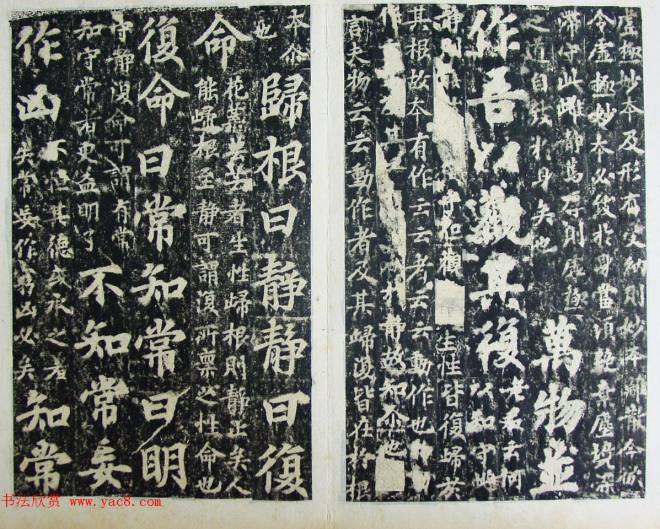 虛極妙本及形有受納則妙本離散今欲
令虛極妙本必致於身當須絕棄塵境染
滯守此雌靜篤厚則虛極
之道自致於身矣也　萬物並
作吾以觀其復　老君云何以知守雌
靜則　觀　生性皆復歸於
其根故本有作云云者云云動作也
作　其　於靜故知尒也
夫物云云動作者及其歸復皆在於根
本尒
也　歸根曰靜靜曰復
命　花葉芸芸者生性歸根則靜止矣人
能歸根至靜可謂復所稟之性命也
復命曰常知常曰明
守靜復命可謂有常
知守常者更益明了　不知常妄
作凶　不恒其德或承之羞
失常妄作窮凶必矣　知常
书法欣赏 www.yac8.com